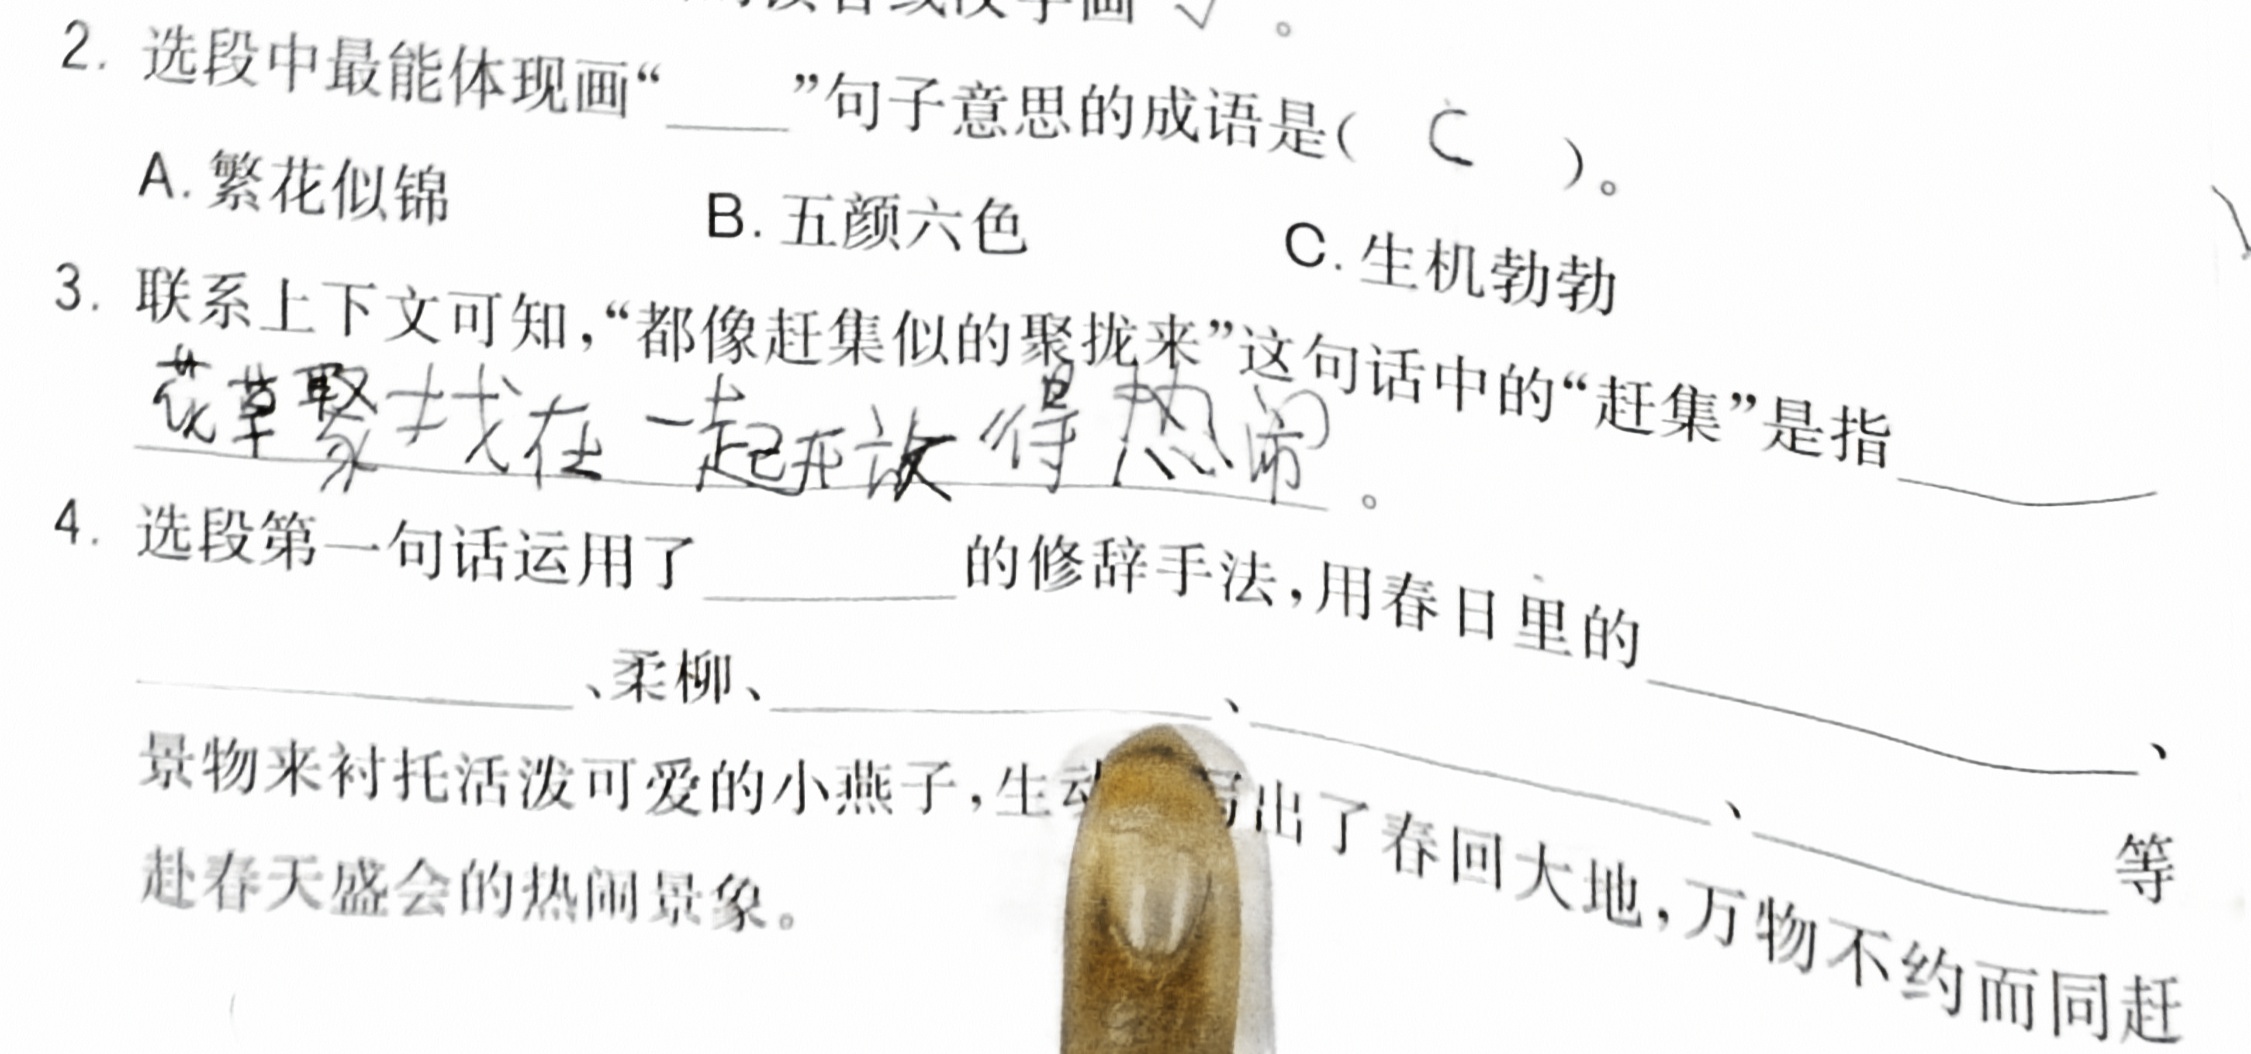 2. 选段中最能体现画“____”句子意思的成语是( C )。
A. 繁花似锦 B. 五颜六色 C. 生机勃勃
3. 联系上下文可知,“都像赶集似的聚拢来”这句话中的“赶集”是指______
花草聚找在一起开放得热闹。
4. 选段第一句话运用了________的修辞手法,用春日里的________、
________、柔柳、________、________、________等
景物来衬托活泼可爱的小燕子,生动 写出了春回大地,万物不约而同赶
赴春天盛会的热闹景象。